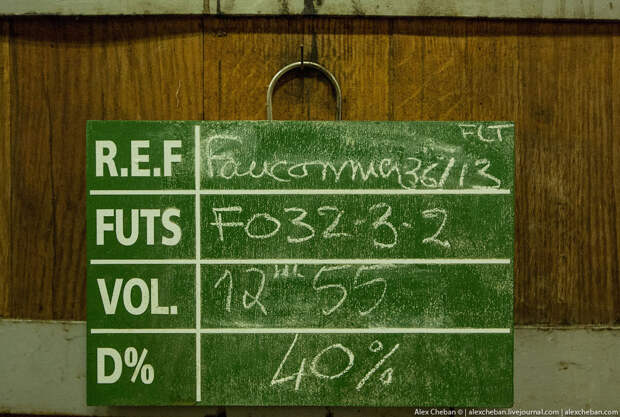 FCT
R.E.F Fauconnier 36/13
FUTS F032-3-2
VOL. 12 HL 55
D% 40%
Alex Cheban © | alexcheban.livejournal.com | alexcheban.com